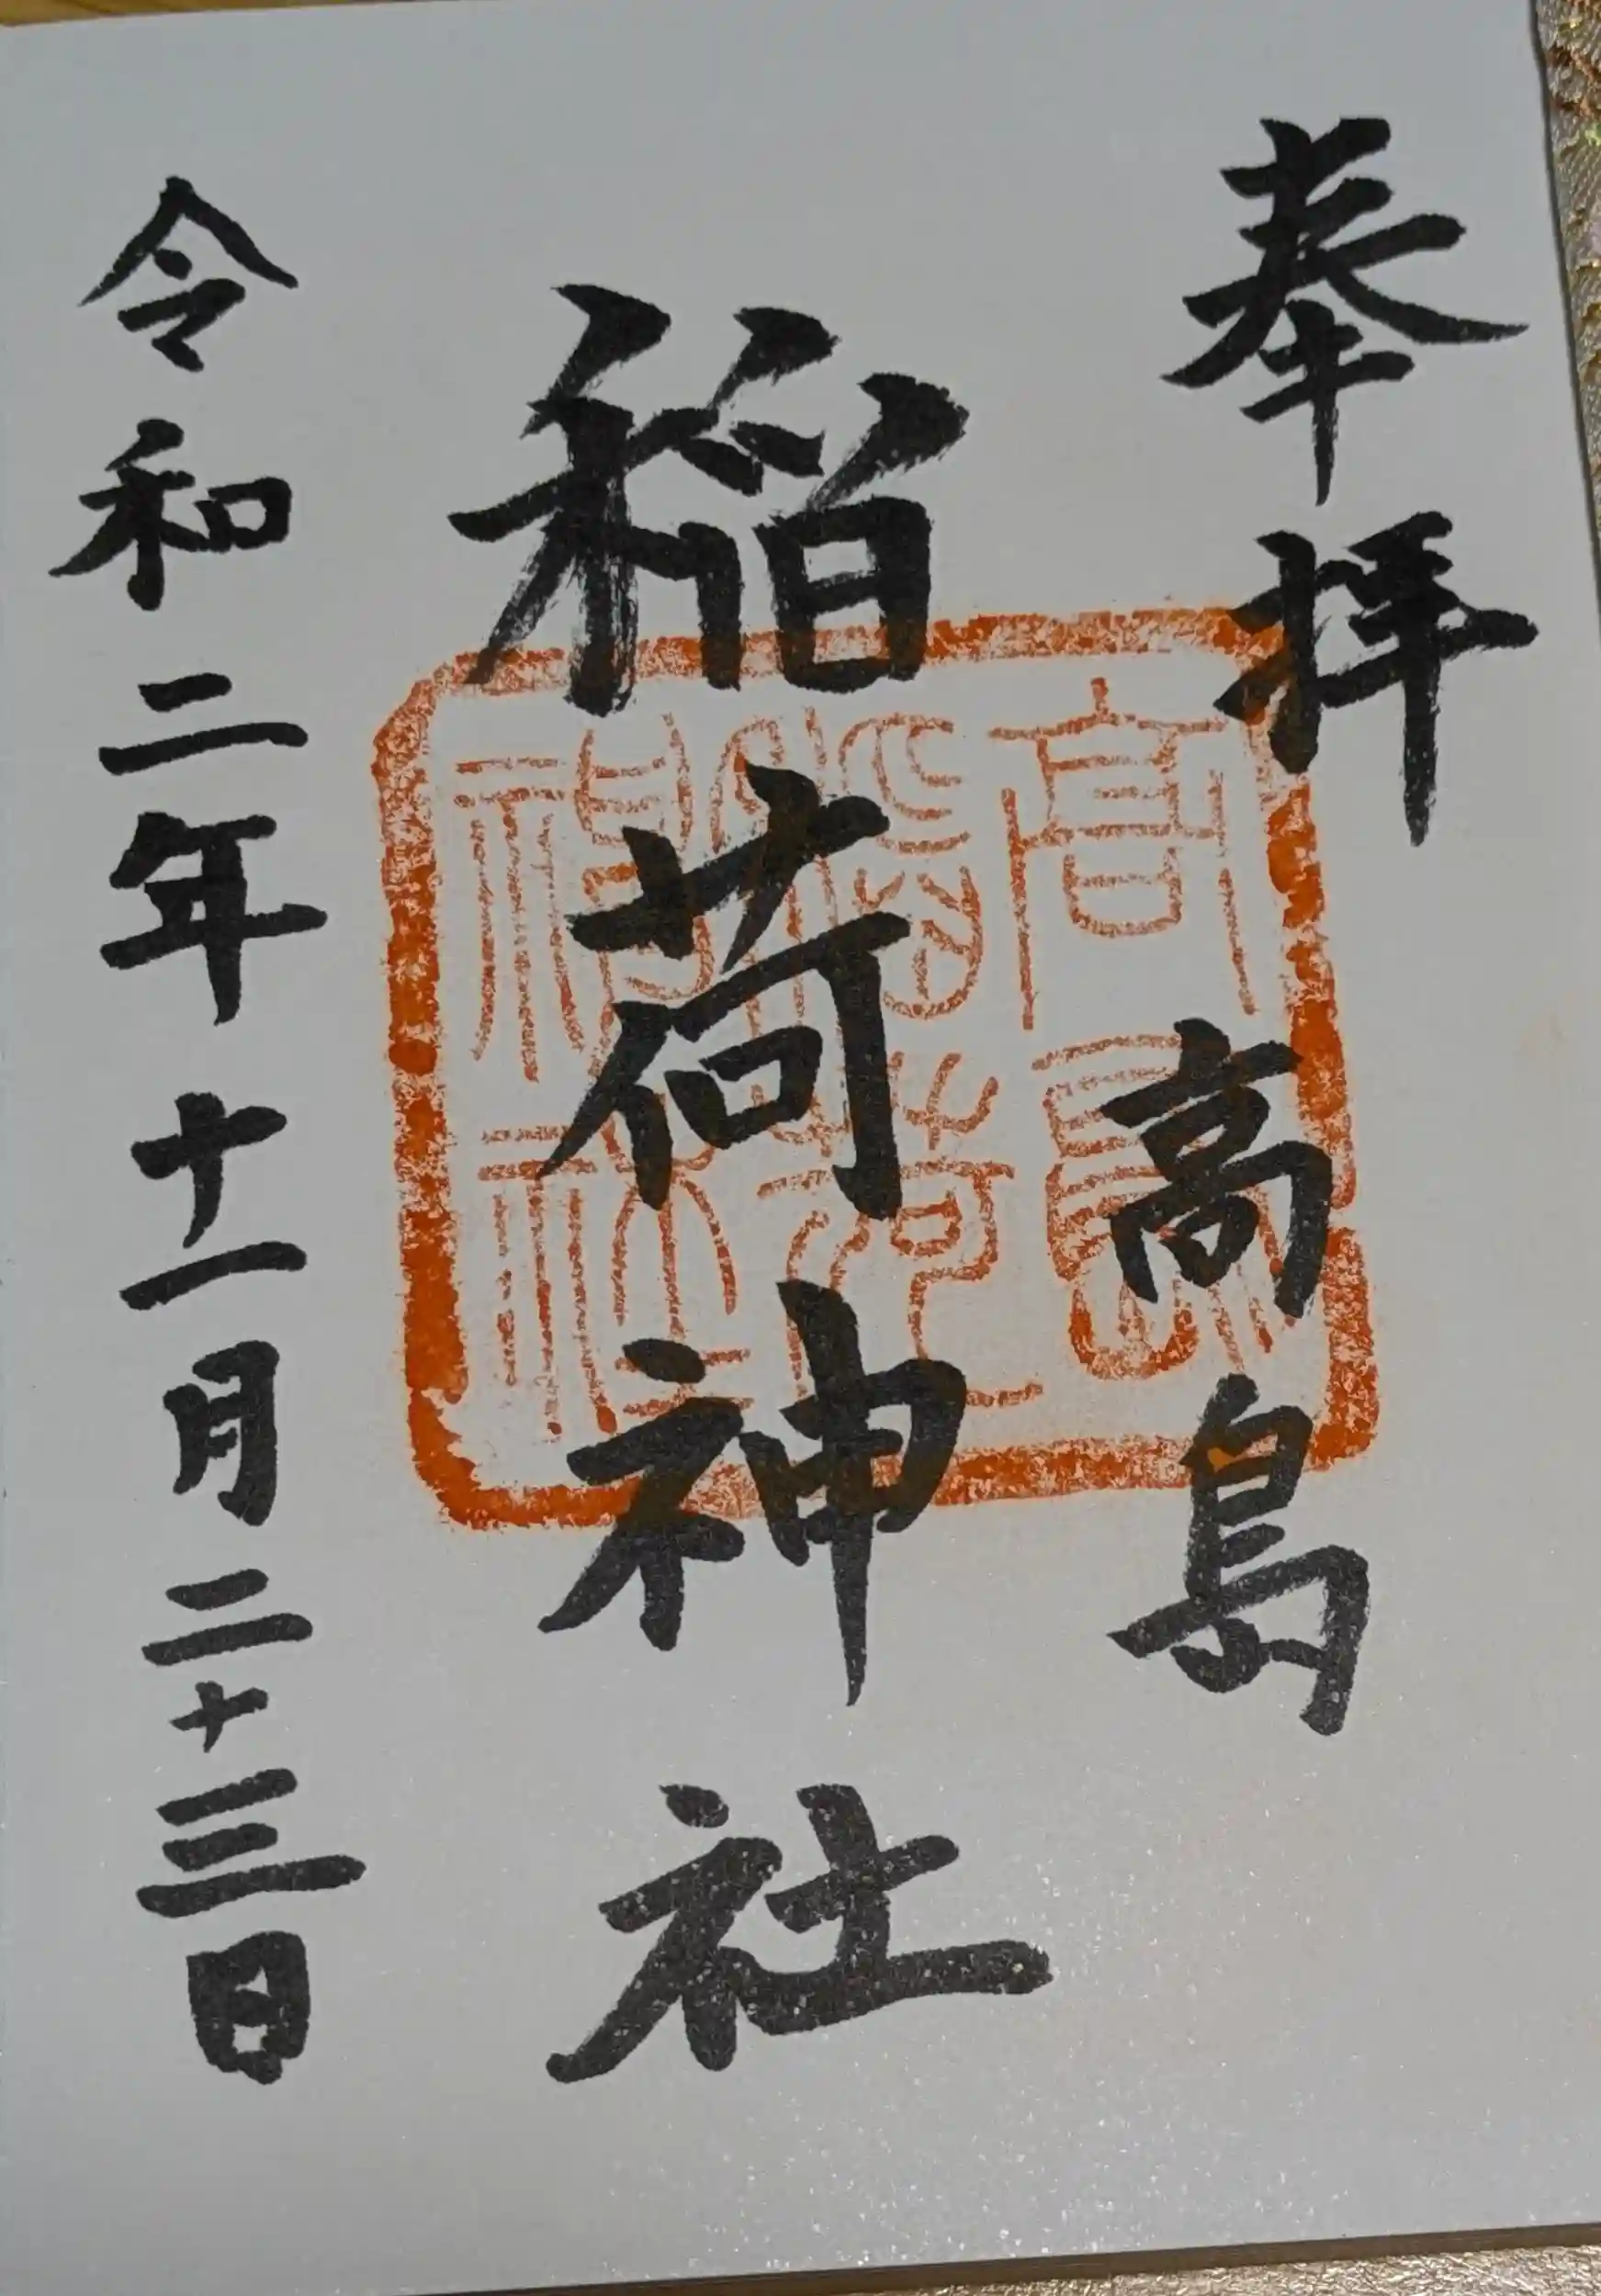 奉拝
高島
稲荷神社
令和二年十一月二十三日
高島
稲荷
神社